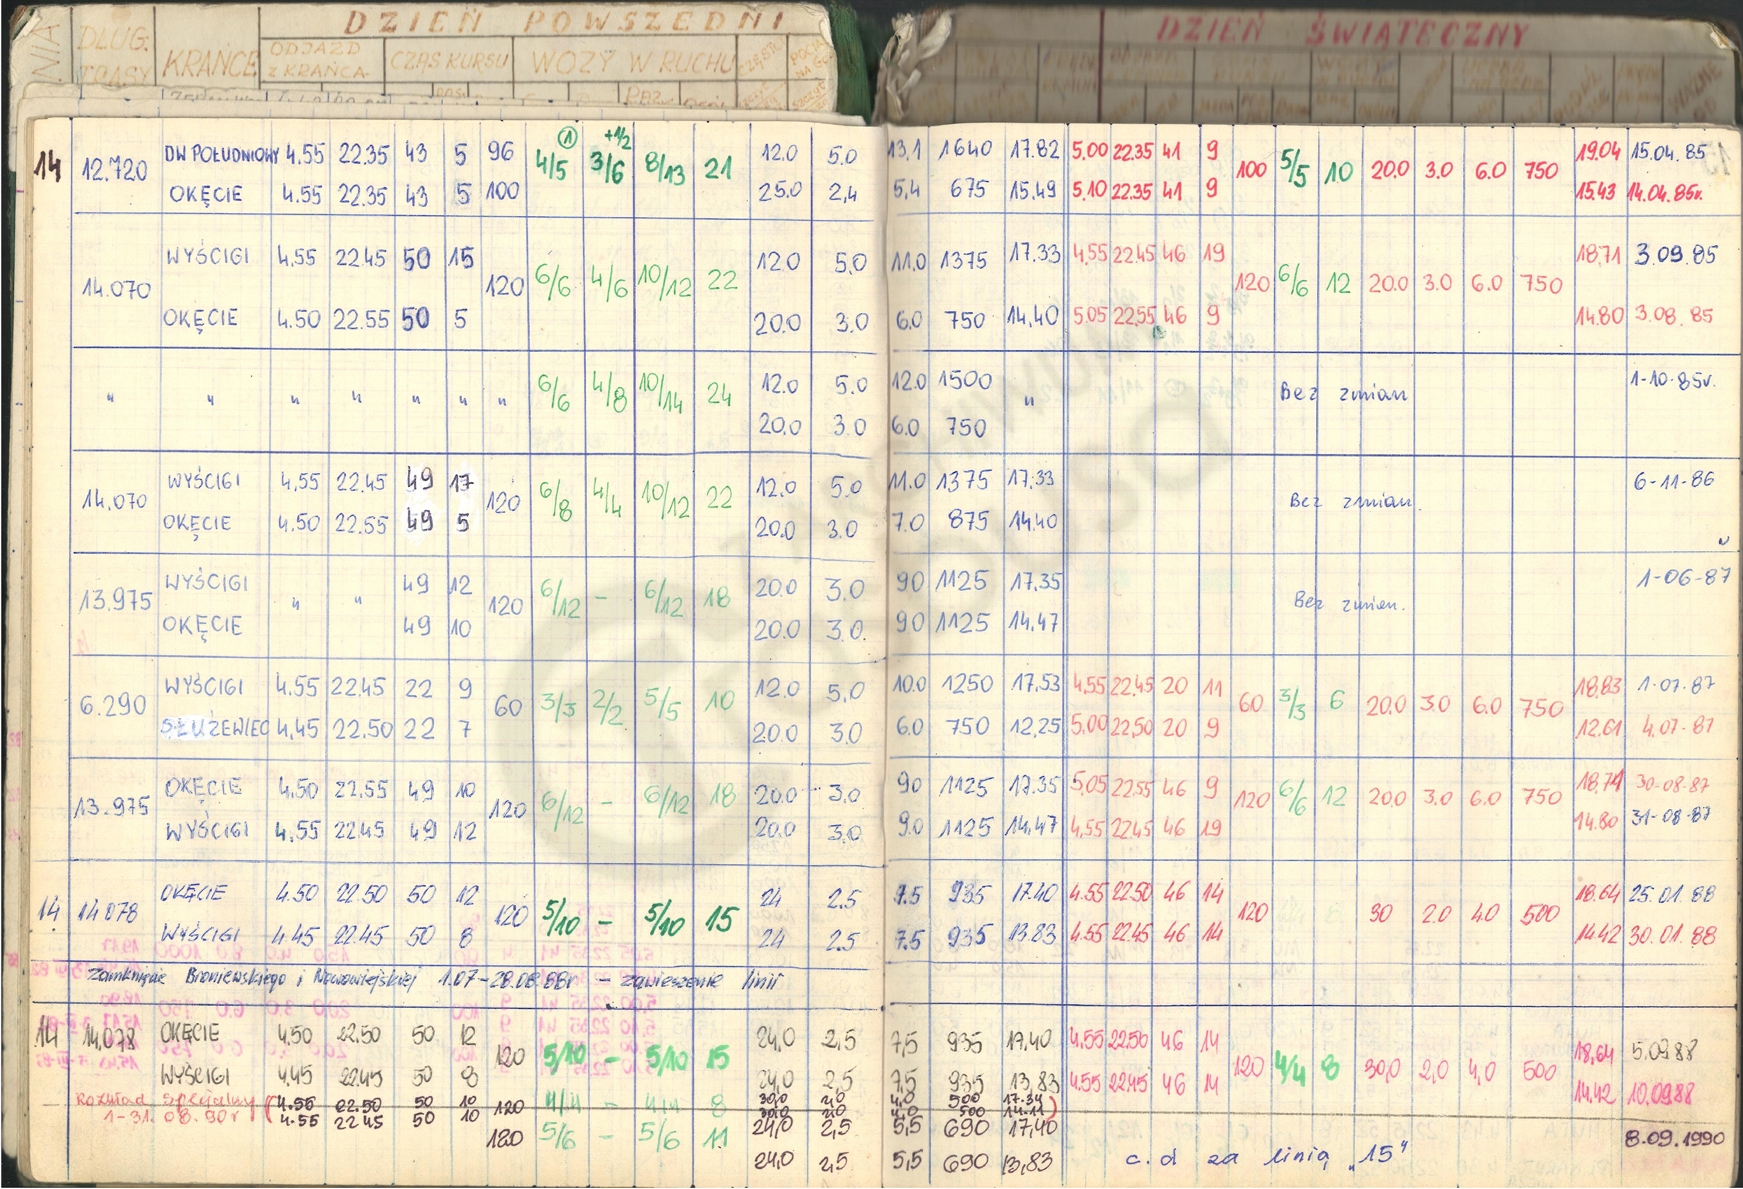 DZIEŃ POWSZEDNI
DZIEŃ ŚWIĄTECZNY
DŁUG. TRASY KRAŃCE ODJAZD Z KRAŃCA CZAS KURSU WOZY W RUCHU
14 12.720 DW POŁUDNIOWY 4.55 22.35 43 5 96 4/5 ① 3/6 +1/2 8/13 21 12.0 5.0 13,1 1640 17.82 5.00 22.35 41 9 100 5/5 10 20.0 3.0 6.0 750 19.04 15.04.85
OKĘCIE 4.55 22.35 43 5 100 25.0 2,4 5,4 675 15.49 5.10 22.35 41 9 15.43 14.04.85r.
14.070 WYŚCIGI 4.55 22.45 50 15 120 6/6 4/6 10/12 22 12.0 5.0 11.0 1375 17.33 4.55 22.45 46 19 120 6/6 12 20.0 3.0 6.0 750 18.71 3.09.85
OKĘCIE 4.50 22.55 50 5 20.0 3.0 6.0 750 14.40 5.05 22.55 46 9 14.80 3.08.85
" " " " " " " 6/6 4/8 10/14 24 12.0 5.0 12.0 1500 " Bez zmian 1-10-85r.
20.0 3.0 6.0 750
14.070 WYŚCIGI 4.55 22.45 49 17 120 6/8 4/4 10/12 22 12.0 5.0 11.0 1375 17.33 Bez zmian. 6-11-86
OKĘCIE 4.50 22.55 49 5 20.0 3.0 7.0 875 14.40
13.975 WYŚCIGI " " 49 12 120 6/12 - 6/12 18 20.0 3.0 9.0 1125 17.35 Bez zmian. 1-06-87
OKĘCIE 49 10 20.0 3.0. 9.0 1125 14.47
6.290 WYŚCIGI 4.55 22.45 22 9 60 3/3 2/2 5/5 10 12.0 5.0 10.0 1250 17.53 4.55 22.45 20 11 60 3/3 6 20.0 3.0 6.0 750 18.83 1-07-87
SŁUŻEWIEC 4.45 22.50 22 7 20.0 3.0 6.0 750 12.25 5.00 22.50 20 9 12.61 4.07-87
13.975 OKĘCIE 4.50 22.55 49 10 120 6/12 - 6/12 18 20.0 3.0 9.0 1125 17.35 5.05 22.55 46 9 120 6/6 12 20.0 3.0 6.0 750 18.74 30-08-87
WYŚCIGI 4.55 22.45 49 12 20.0 3.0 9.0 1125 14.47 4.55 22.45 46 19 14.80 31-08-87
14 14078 OKĘCIE 4.50 22.50 50 12 120 5/10 - 5/10 15 24 2.5 7.5 935 17.40 4.55 22.50 46 14 120 8 30 2.0 4.0 500 18.64 25.01.88
WYŚCIGI 4.45 22.45 50 8 24 2.5 7.5 935 13.83 4.55 22.45 46 14 14.42 30.01.88
Zamknięcie Broniewskiego i Nowowiejskiej 1.07-28.08.88r - zawieszenie linii
14 14.078 OKĘCIE 4.50 22.50 50 12 120 5/10 - 5/10 15 24,0 2,5 7,5 935 17.40 4.55 22.50 46 14 120 4/4 8 30,0 2,0 4,0 500 18,64 5.09.88
WYŚCIGI 4.45 22.45 50 8 24,0 2,5 7,5 935 13,83 4.55 22.45 46 14 14.42 10.09.88
Rozkład specjalny (4.55 22.50 50 10 120 4/4 - 4/4 8 30,0 2,0 4,0 500 17.34
1-31.08.90r 4.55 22.45 50 10 30,0 2,0 4,0 500 14.11)
120 5/6 - 5/6 11 24,0 2,5 5,5 690 17,40 8.09.1990
24,0 2,5 5,5 690 13,83 c.d za linią „15"